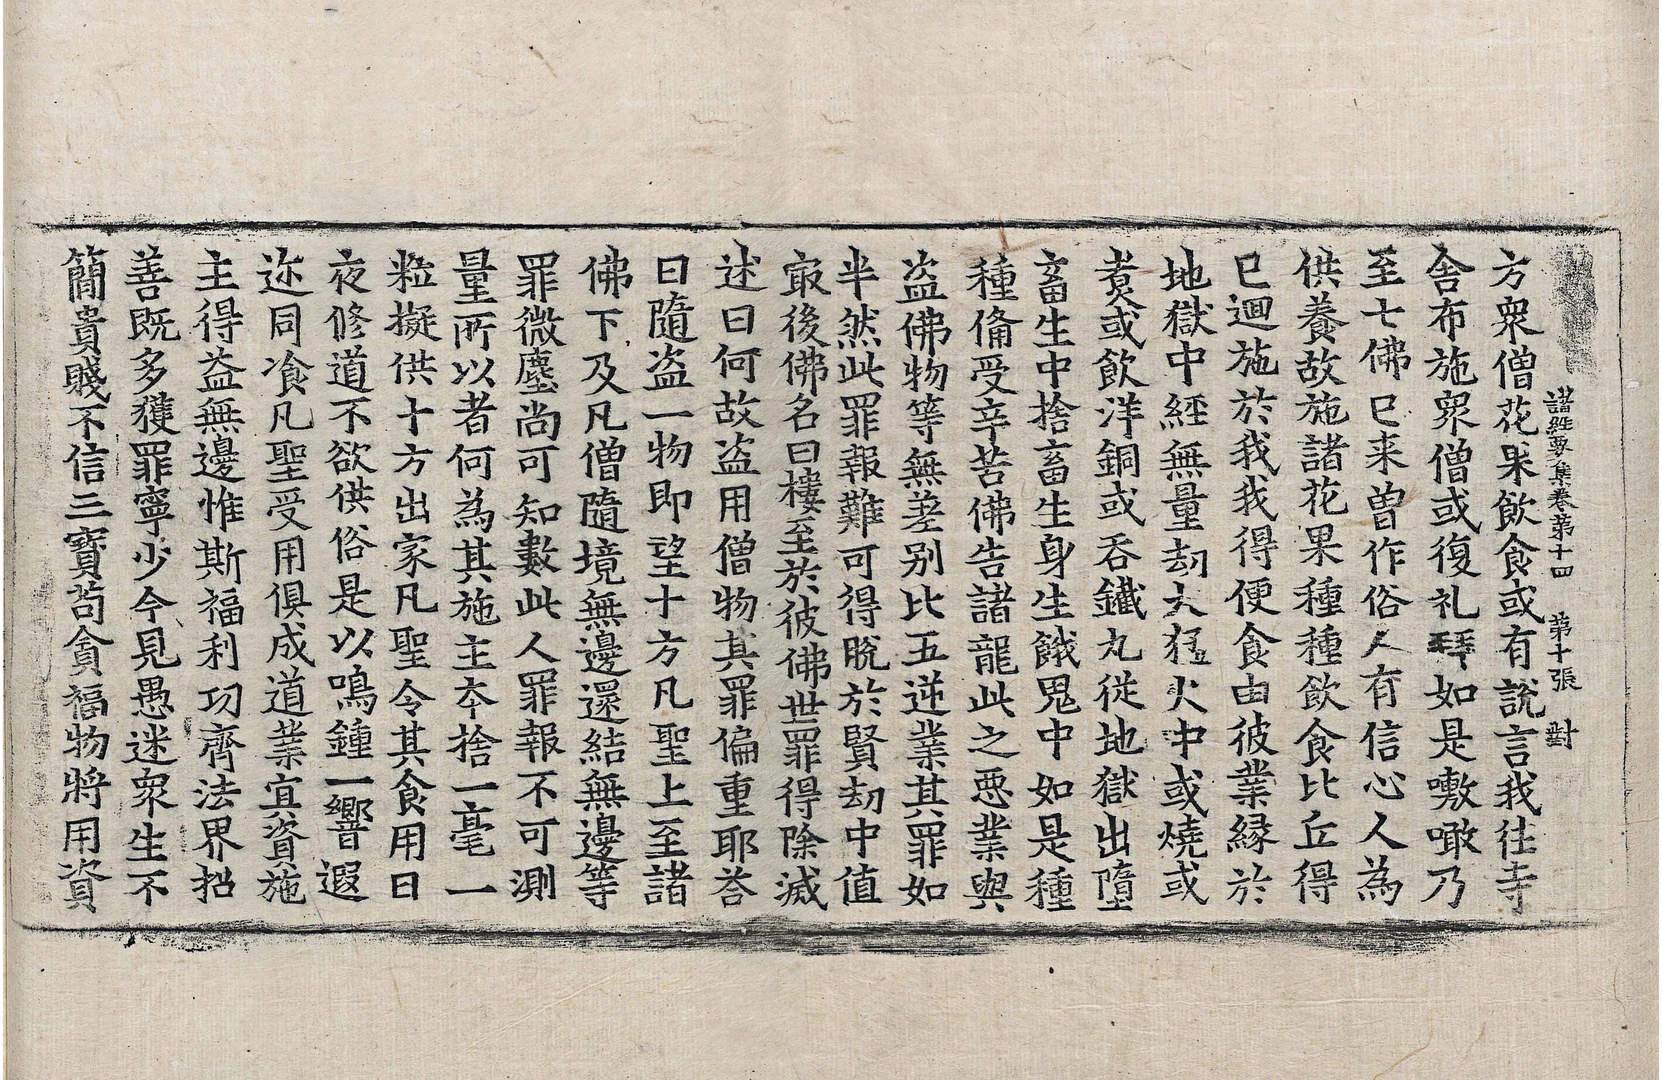 諸經要集卷第十四 第十張 對
方眾僧花果飲食或有說言我往寺
舍布施眾僧或復礼拜如是嗷噉乃
至七佛巳来曾作俗人有信心人為
供養故施諸花果種種飲食比丘得
巳迴施於我我得便食由彼業縁於
地獄中經無量劫大猛火中或燒或
煑或飲洋銅或吞鐵丸從地獄出墮
畜生中捨畜生身生餓鬼中如是種
種俻受辛苦佛告諸龍此之惡業與
盜佛物等無差别比五逆業其罪如
半然此罪報難可得脫於賢劫中值
㝡後佛名曰樓至於彼佛世罪得除滅
述曰何故盜用僧物其罪偏重耶荅
曰隨盜一物即望十方凡聖上至諸
佛下及凡僧隨境無邊還結無邊等
罪微塵尚可知數此人罪報不可測
量所以者何為其施主夲捨一毫一
粒擬供十方出家凡聖令其食用日
夜修道不欲供俗是以鳴鍾一響遐
迩同飡凡聖受用俱成道業冝資施
主得益無邊惟斯福利功齊法界招
善既多獲罪寧少今見愚迷眾生不
簡貴賤不信三寶苟貪福物將用資